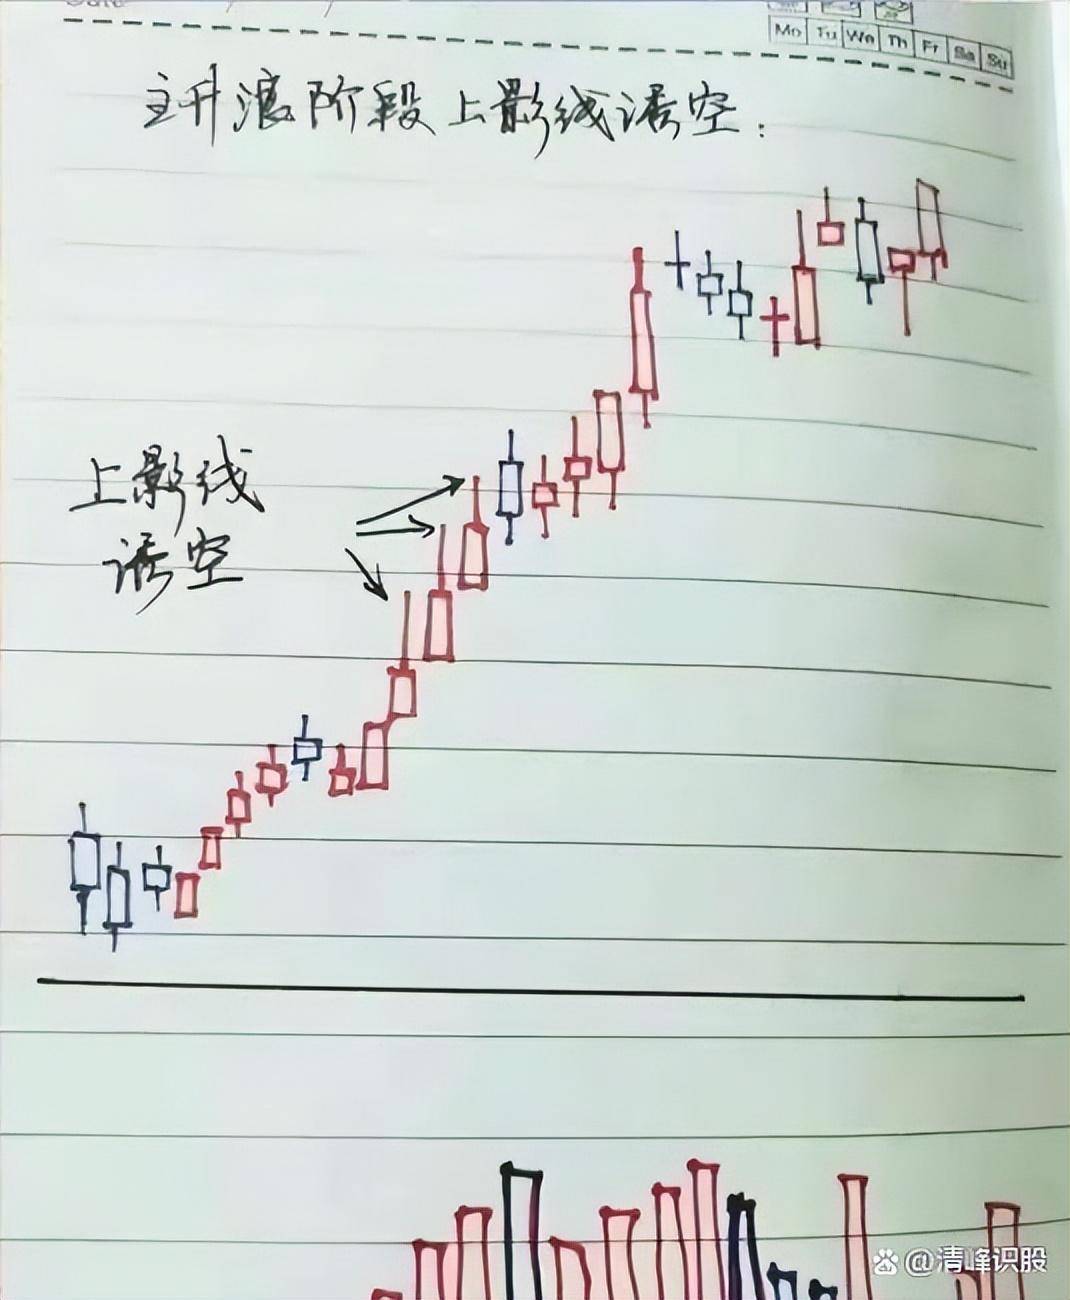 Mo Tu We Th Fr Sa Su
主升浪阶段上影线诱空：
上影线
诱空
@清峰识股